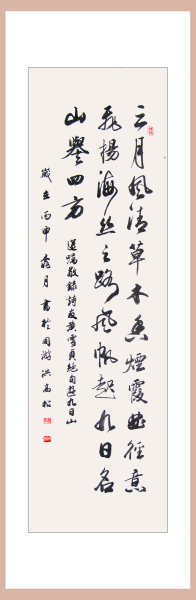 三月風清草木香煙霞曲徑意
飛揚海丝之路風帆起九日名
山譽四方
選囑敬錄詩友黃雪貞絕句遊九日山
歲在丙申 月書於周游洪為松